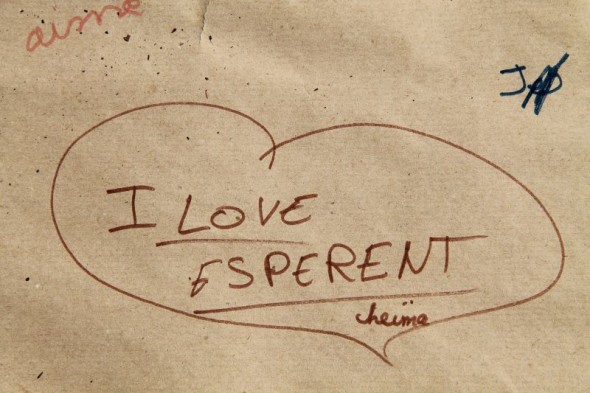 aime
I LOVE
ESPERENT
cheïma